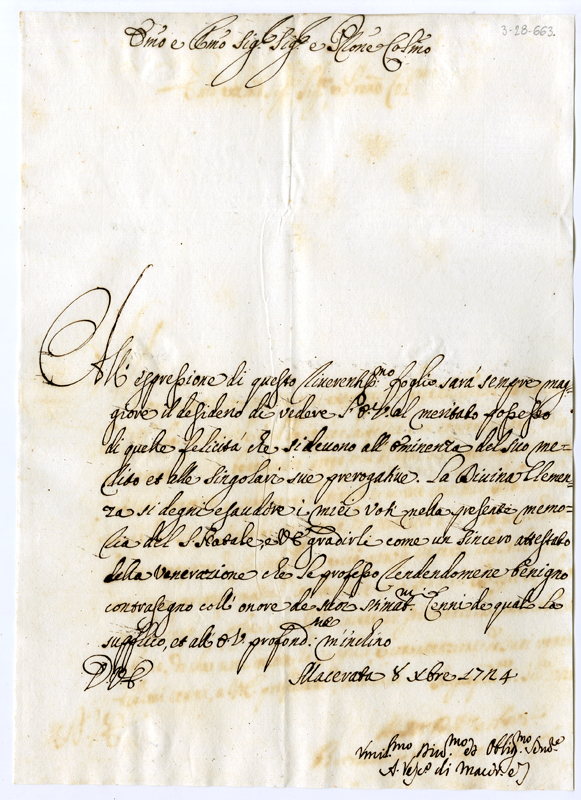 3-28-663.
Emo e Rmo Sigre Sigre e Prone Colmo
All' espressione di questo riverentissmo foglio sarà sempre mag-
giore il desiderio di vedere l' E V. al meritato possesso
di quelle felicità che si devono all' eminenza del suo me-
rito et alle singolari sue prerogative. La Divina Clemen-
za si degni esaudire i miei voti nella presente memo-
ria del S. Natale, e VE gradirli come un sincero attestato
della venerazione che le professo rendendomene benigno
contrasegno coll' onore de suoi stimatmi cenni de quali La
supplico, et all' E V. profondmte m'inchino
D V E Macerata 8 Xbre 1724
Umilmo Divmo et Obligmo Servre
A. Vesco di Macer